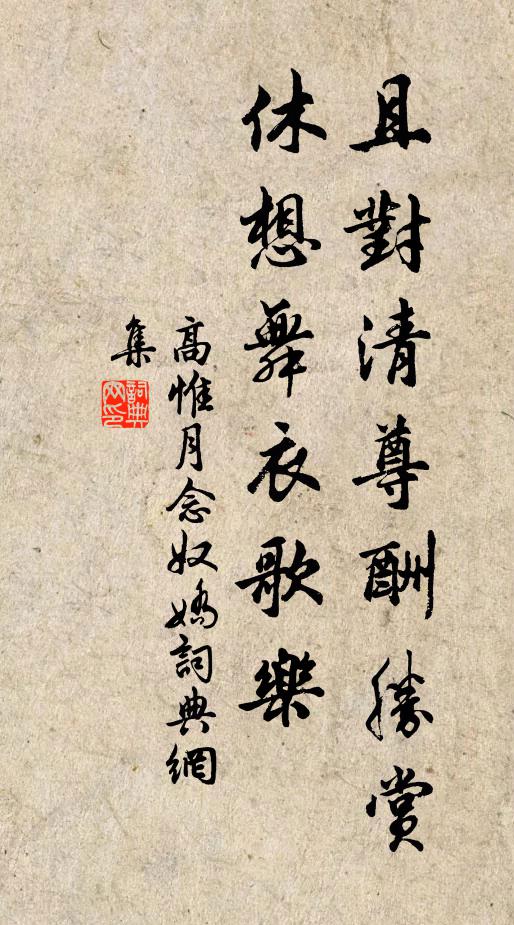 且對清尊酬勝賞
休想舞衣歌樂
高惟月念奴嬌詞典網
集
詞典
网印